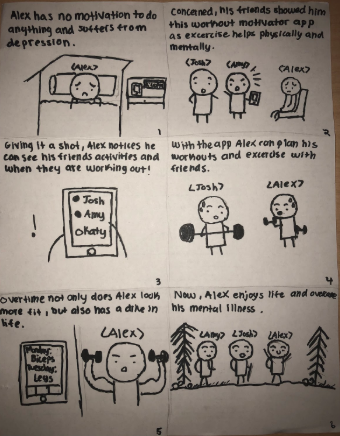 Alex has no motivation to do
anything and suffers from
depression.
<Alex>
1
Concerned, his friends showed him
this workout motivator app
as exercise helps physically and
mentally.
<Josh>
<Amy>
<Alex>
2
Giving it a shot, Alex notices he
can see his friends activities and
when they are working out!
Josh
Amy
Katy
!
3
With the app Alex can plan his
workouts and exercise with
friends.
<Josh>
<Alex>
4
Overtime not only does Alex look
more fit, but also has a drive in
life.
<Alex>
Monday:
Biceps
Tuesday:
Legs
5
Now, Alex enjoys life and overcame
his mental illness.
<Amy>
<Josh>
<Alex>
6